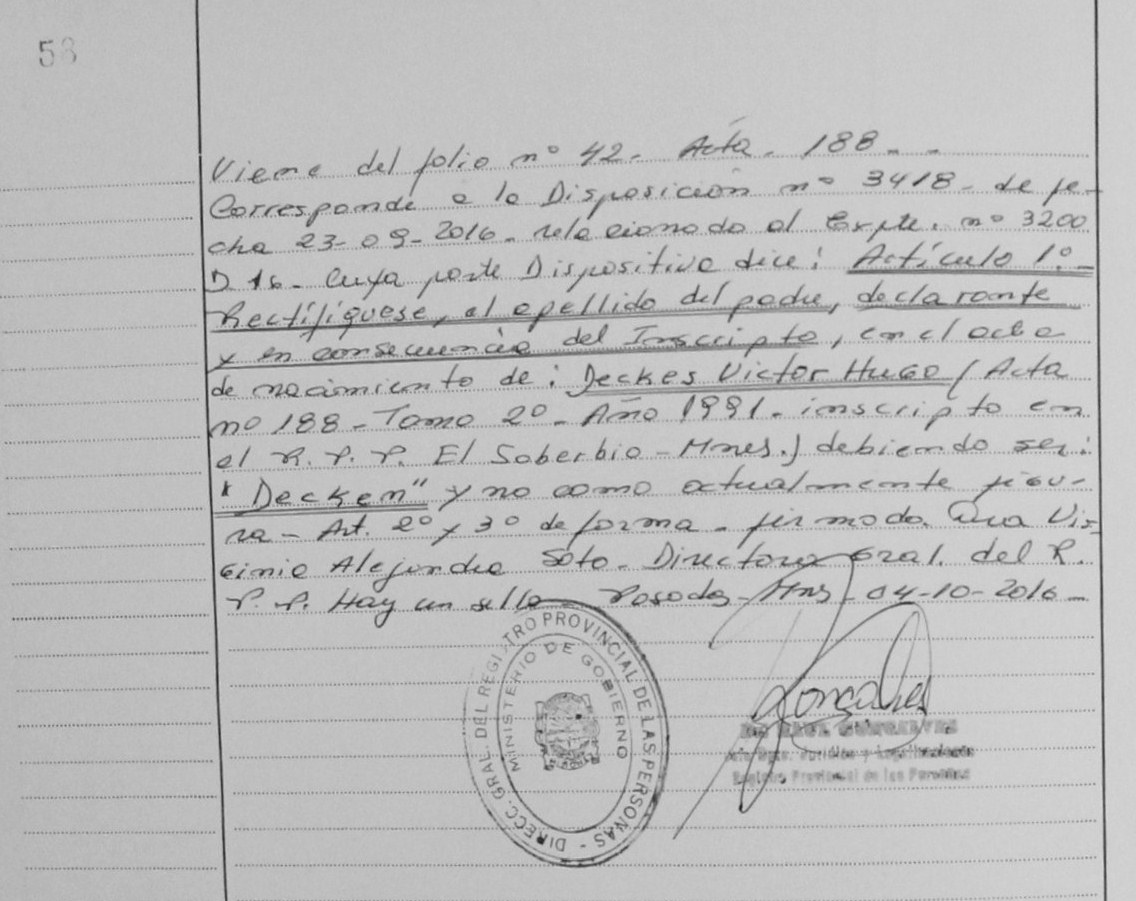 58
Viene del folio nº 42. Acta. 188. -
Corresponde a la Disposición nº 3418. de fe-
cha 23-09-2016. relacionado al Expte. nº 3200
D 16. Cuya parte Dispositiva dice: Artículo 1º-
Rectifíquese, el apellido del padre, declarante
y en consecuencia del Inscripto, en el acta
de nacimiento de: Deckes Victor Hugo (Acta
nº 188 - Tomo 2º - Año 1991. inscripto en
el R. P. P. El Soberbio - Mnes.) debiendo ser:
"Decken" y no como actualmente figu-
ra - Art. 2º y 3º de forma. firmado. Ana Vir-
ginia Alejandra Soto. Directora Gral. del R.
P. P. Hay un sello - Posadas - Mns - 04-10-2016 -
DIRECC. GRAL. DEL REGISTRO PROVINCIAL DE LAS PERSONAS -
MINISTERIO DE GOBIERNO
Registro Provincial de las Personas